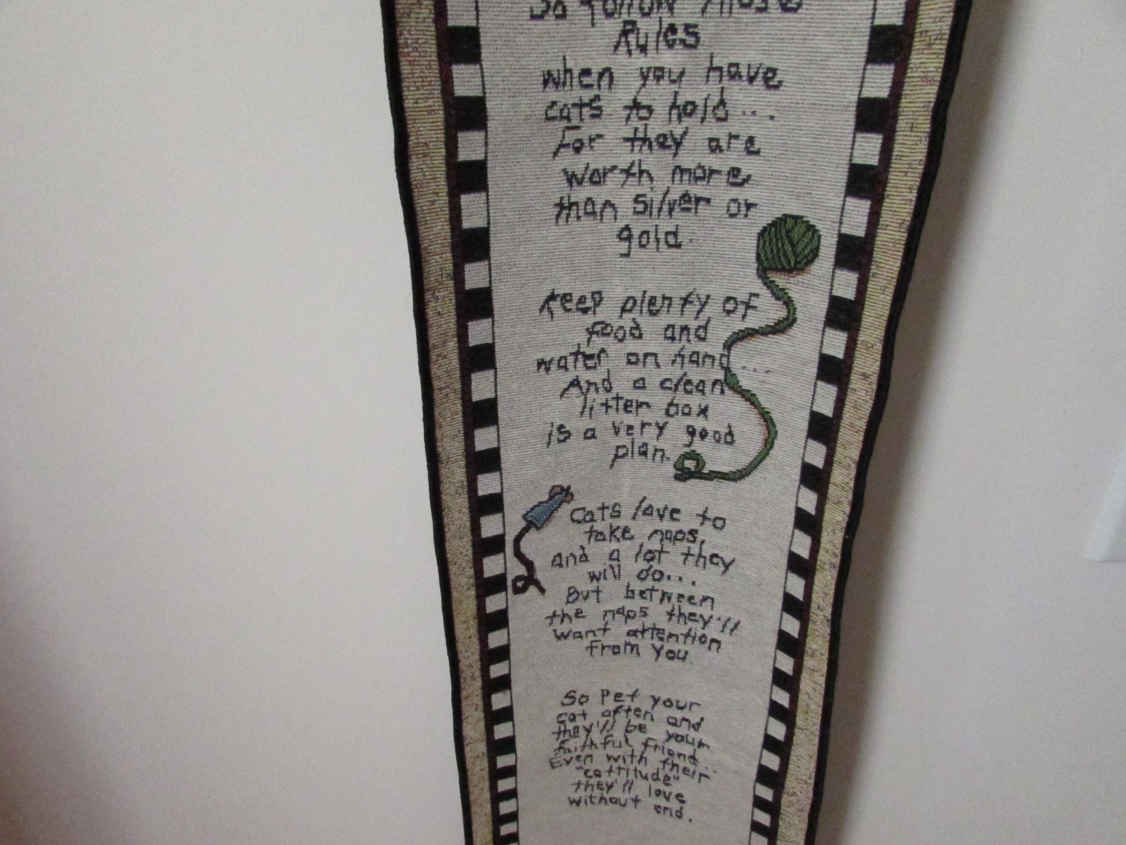 So follow these
Rules
when you have
cats to hold...
For they are
worth more
than silver or
gold.
Keep plenty of
food and
water on hand...
And a clean
litter box
is a very good
plan.
Cats love to
take naps,
and a lot they
will do...
But between
the naps they'll
want attention
from you.
So Pet your
cat often and
they'll be your
faithful friend...
Even with their
"cattitude"
they'll love
without end.